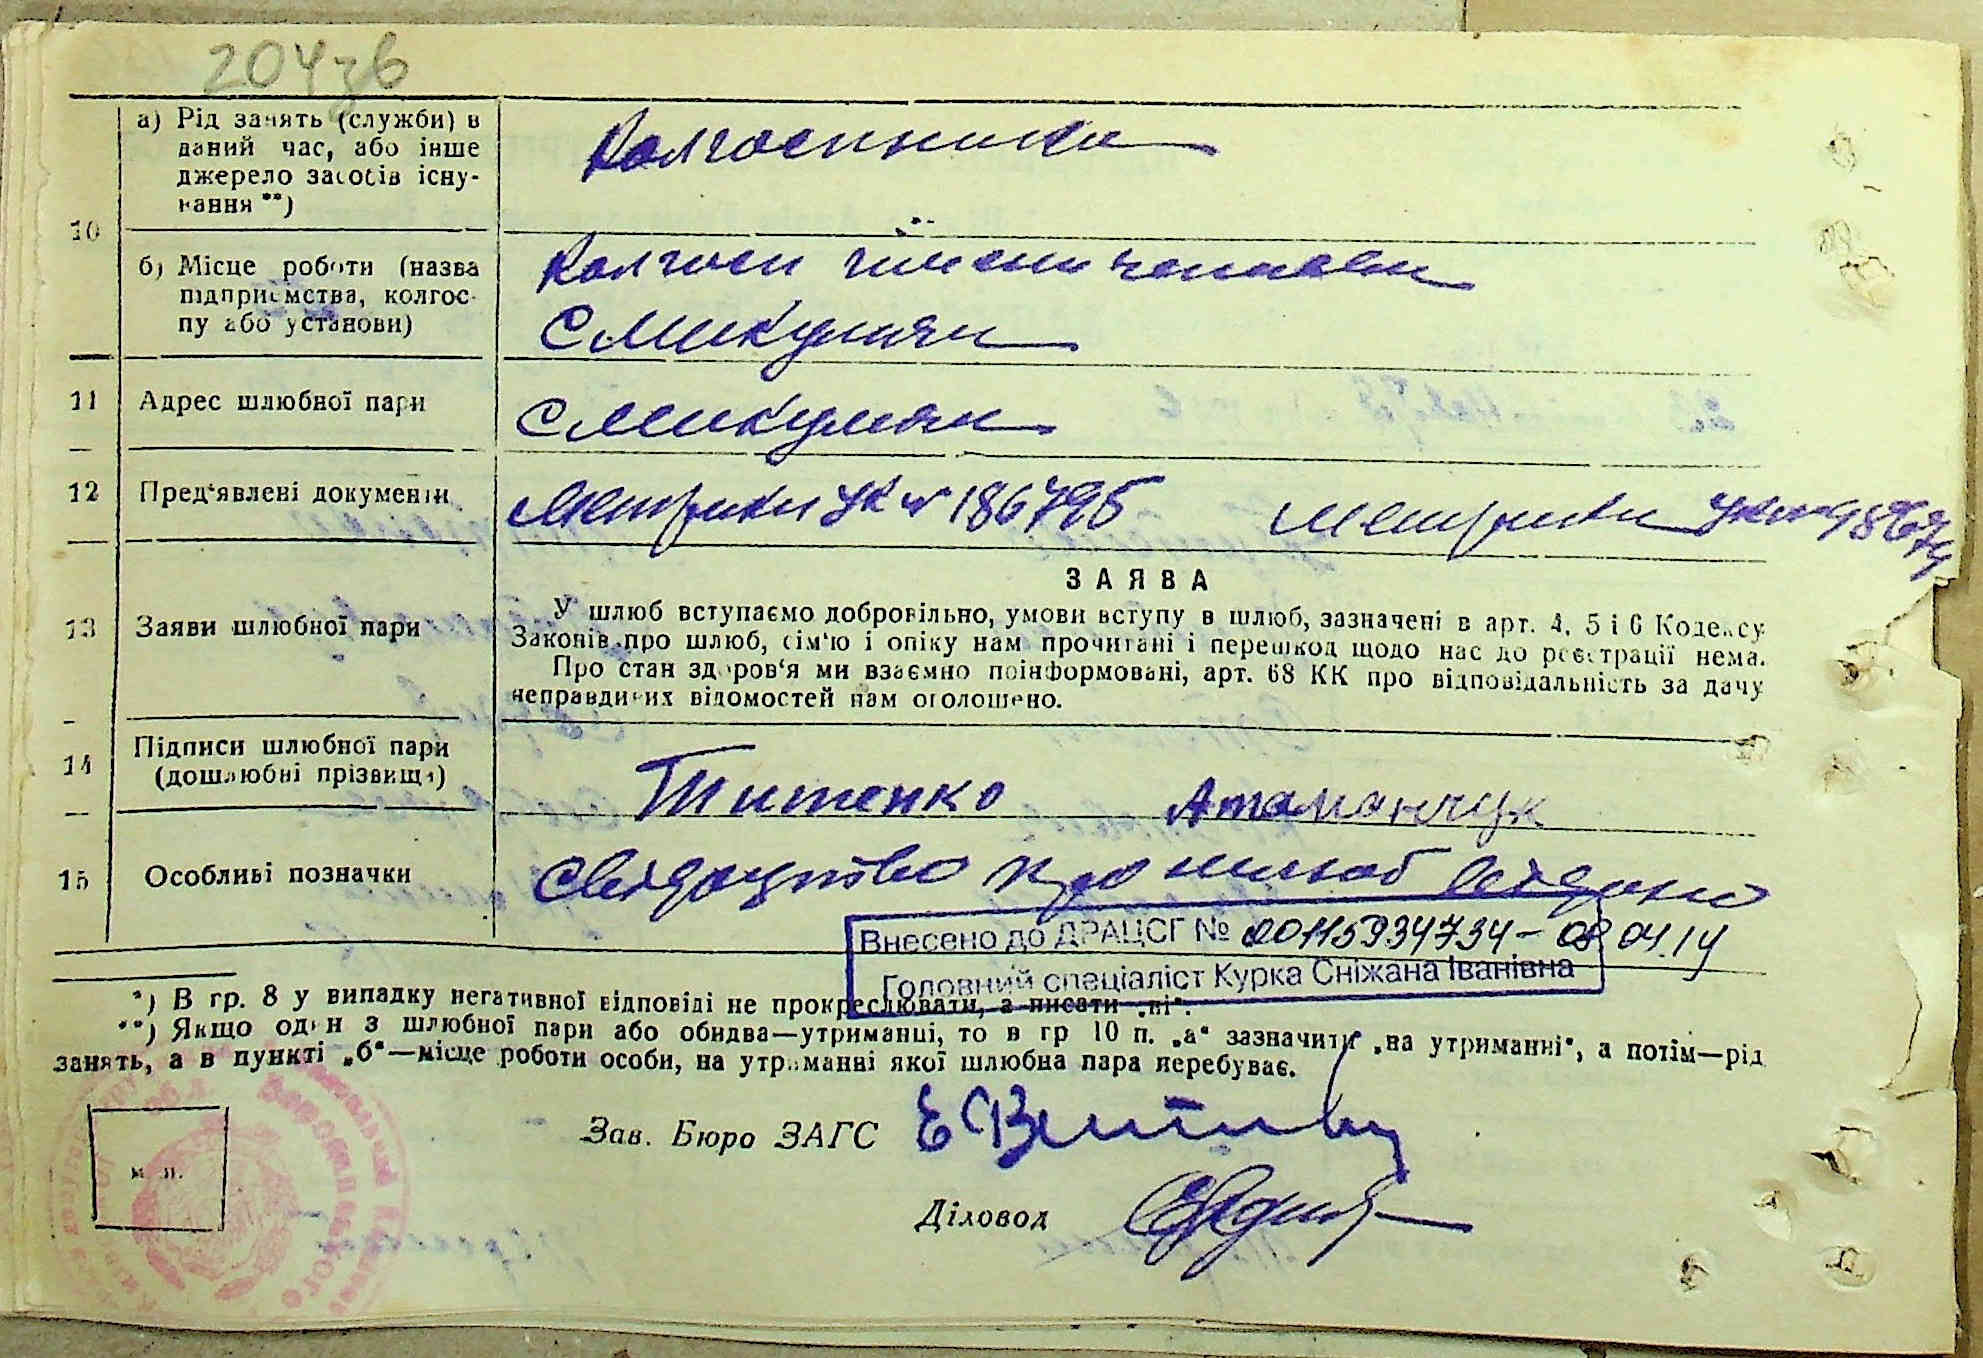 204зв
10
а) Рід занять (служби) в даний час, або інше джерело засобів існування **)
Колгоспники
б) Місце роботи (назва підприємства, колгоспу або установи)
Колгосп імени чапаєва
С Микулин
11 Адрес шлюбної пари
С Микулин
12 Пред'явлені документи
Метрики УК № 186795 Метрики УК №
13 Заяви шлюбної пари
ЗАЯВА
У шлюб вступаємо добровільно, умови вступу в шлюб, зазначені в арт. 4, 5 і 6 Кодексу
Законів про шлюб, сім'ю і опіку нам прочитані і перешкод щодо нас до реєстрації нема.
Про стан здоров'я ми взаємно поінформовані, арт. 68 КК про відповідальність за дачу
неправдивих відомостей нам оголошено.
14 Підписи шлюбної пари (дошлюбні прізвища)
Титенко Атаманчук
15 Особливі позначки
Свідоцтво про шлюб видано
Внесено до ДРАЦСГ № 00115934734 - 08 04.14
Головний спеціаліст Курка Сніжана Іванівна
*) В гр. 8 у випадку негативної відповіді не прокреслювати, а писати „ні“.
**) Якщо один з шлюбної пари або обидва—утриманці, то в гр 10 п. „а“ зазначити „на утриманні“, а потім—рід
занять, а в пункті „б“—місце роботи особи, на утриманні якої шлюбна пара перебуває.
Зав. Бюро ЗАГС
м. п.
Діловод